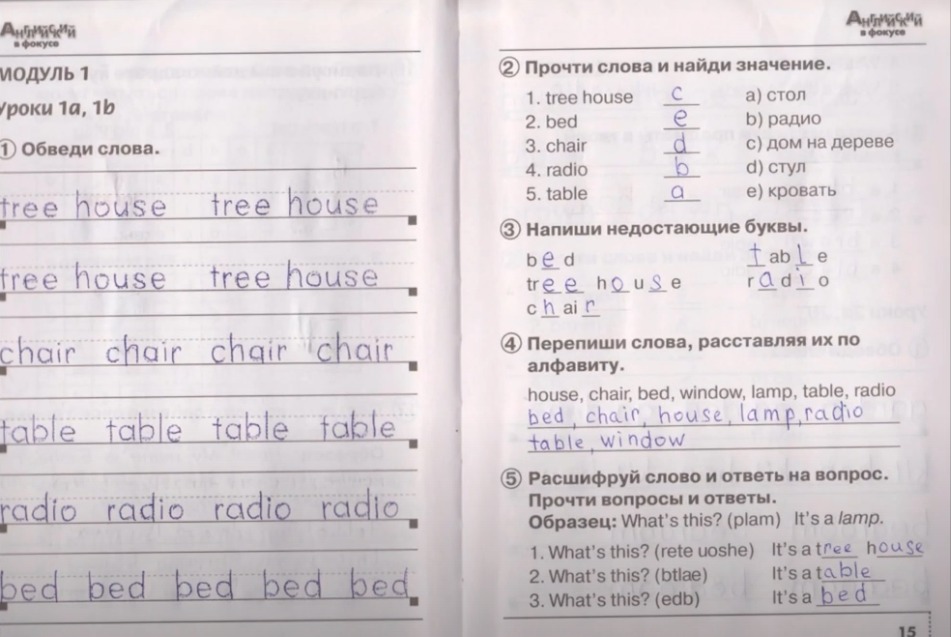 Английский
в фокусе
МОДУЛЬ 1
Уроки 1a, 1b
① Обведи слова.
tree house tree house
tree house tree house
chair chair chair chair
table table table table
radio radio radio radio
bed bed bed bed bed
Английский
в фокусе
② Прочти слова и найди значение.
1. tree house c a) стол
2. bed e b) радио
3. chair d c) дом на дереве
4. radio b d) стул
5. table a e) кровать
③ Напиши недостающие буквы.
bed table
tree house radio
chair
④ Перепиши слова, расставляя их по
алфавиту.
house, chair, bed, window, lamp, table, radio
bed, chair, house, lamp, radio
table, window
⑤ Расшифруй слово и ответь на вопрос.
Прочти вопросы и ответы.
Образец: What's this? (plam) It's a lamp.
1. What's this? (rete uoshe) It's a tree house
2. What's this? (btlae) It's a table
3. What's this? (edb) It's a bed
15